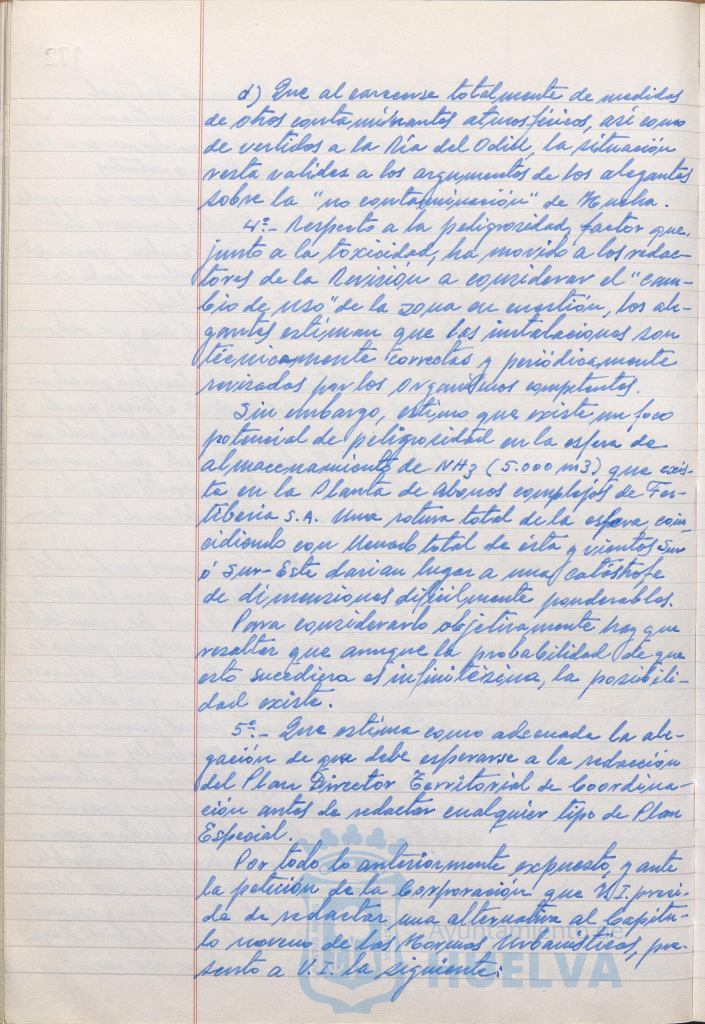 d) Que al carecerse totalmente de medidas
de otros contaminantes atmosféricos, así como
de vertidos a la Ría del Odiel, la situación
resta validez a los argumentos de los alegantes
sobre la "no contaminación" de Huelva.
4º.- Respecto a la peligrosidad, factor que,
junto a la toxicidad, ha movido a los redac-
tores de la Revisión a considerar el "cam-
bio de uso" de la zona en cuestión, los ale-
gantes estiman que las instalaciones son
técnicamente correctas y periódicamente
revisadas por los Organismos competentes.
Sin embargo, estimo que existe un foco
potencial de peligrosidad en la esfera de
almacenamiento de NH3 (5.000 m3) que exis-
te en la Planta de Abonos complejos de Fer-
tiberia S.A. Una rotura total de la esfera, coin-
cidiendo con llenado total de ésta y vientos Sur
ó Sur-Este darían lugar a una catástrofe
de dimensiones difícilmente ponderables.
Para considerarlo objetivamente hay que
resaltar que aunque la probabilidad de que
esto sucediera es infinitésima, la posibili-
dad existe.
5º.- Que estima como adecuada la ale-
gación de que debe esperarse a la redacción
del Plan Director Territorial de Coordina-
ción antes de redactar cualquier tipo de Plan
Especial.
Por todo lo anteriormente expuesto, y ante
la petición de la Corporación que V.I. presi-
de de redactar una alternativa al Capítu-
lo noveno de las Normas Urbanísticas, pre-
sento a V.I. la siguiente:
Ayuntamiento de
HUELVA